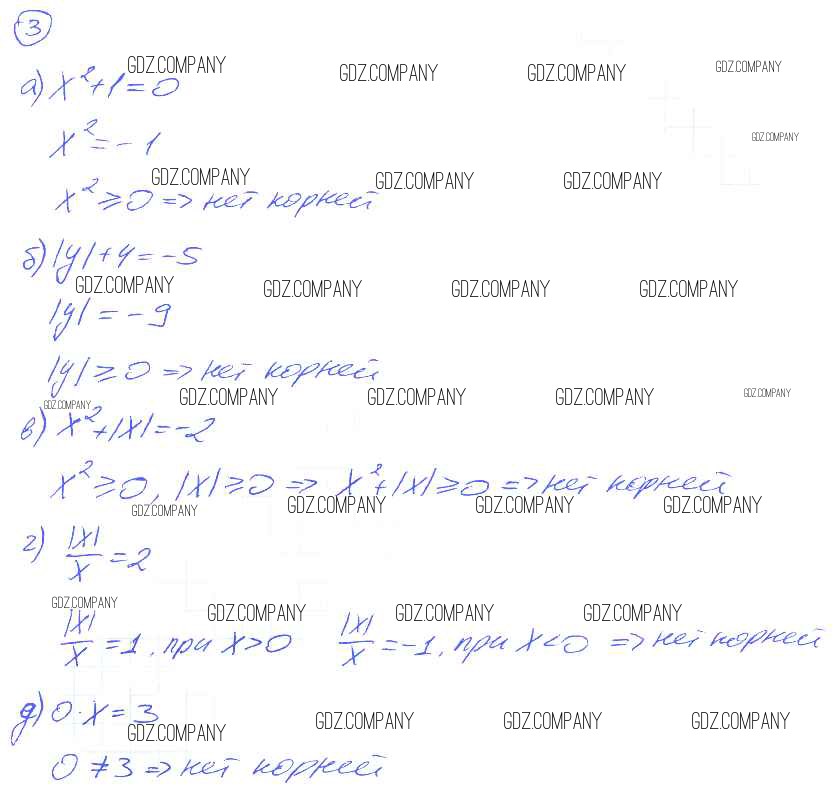 3
GDZ.COMPANY GDZ.COMPANY GDZ.COMPANY GDZ.COMPANY
а) x²+1=0
x²=-1 GDZ.COMPANY
GDZ.COMPANY GDZ.COMPANY GDZ.COMPANY
x²≥0 => нет корней
б) |y|+4=-5
GDZ.COMPANY GDZ.COMPANY GDZ.COMPANY GDZ.COMPANY
|y|=-9
|y|≥0 => нет корней
GDZ.COMPANY GDZ.COMPANY GDZ.COMPANY GDZ.COMPANY GDZ.COMPANY
в) x²+|x|=-2
x²≥0, |x|≥0 => x²+|x|≥0 => нет корней
GDZ.COMPANY GDZ.COMPANY GDZ.COMPANY GDZ.COMPANY
г) |x|/x=2
GDZ.COMPANY GDZ.COMPANY GDZ.COMPANY GDZ.COMPANY
|x|/x=1, при x>0 |x|/x=-1, при x<0 => нет корней
д) 0·x=3
GDZ.COMPANY GDZ.COMPANY GDZ.COMPANY GDZ.COMPANY
0≠3 => нет корней